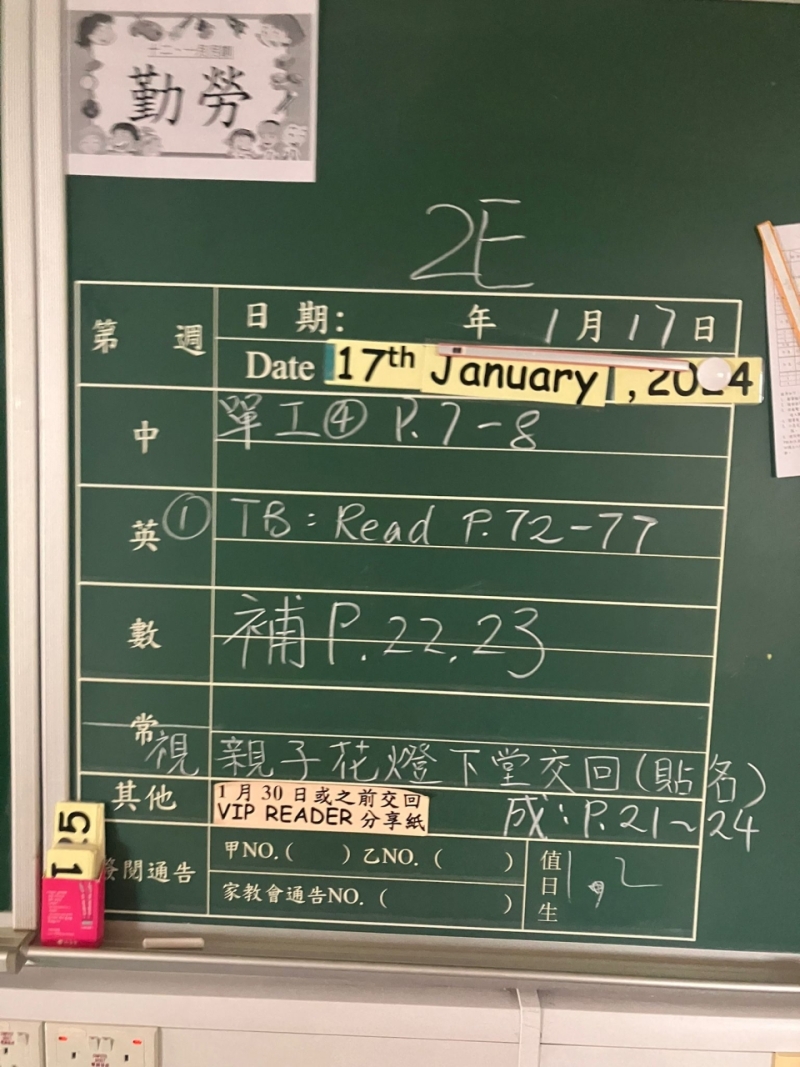 十二、一月主題
勤勞
2E
第 週
日 期: 年 1月17日
Date 17th January, 2024
中
單工④ P.7-8
英
① TB: Read P.72-77
數
補P.22,23
常
視 親子花燈下堂交回(貼名)
其他
1月30日或之前交回
VIP READER分享紙
成:P.21~24
閱通告
甲NO.( ) 乙NO.( )
家教會通告NO.( )
值日生 1,2